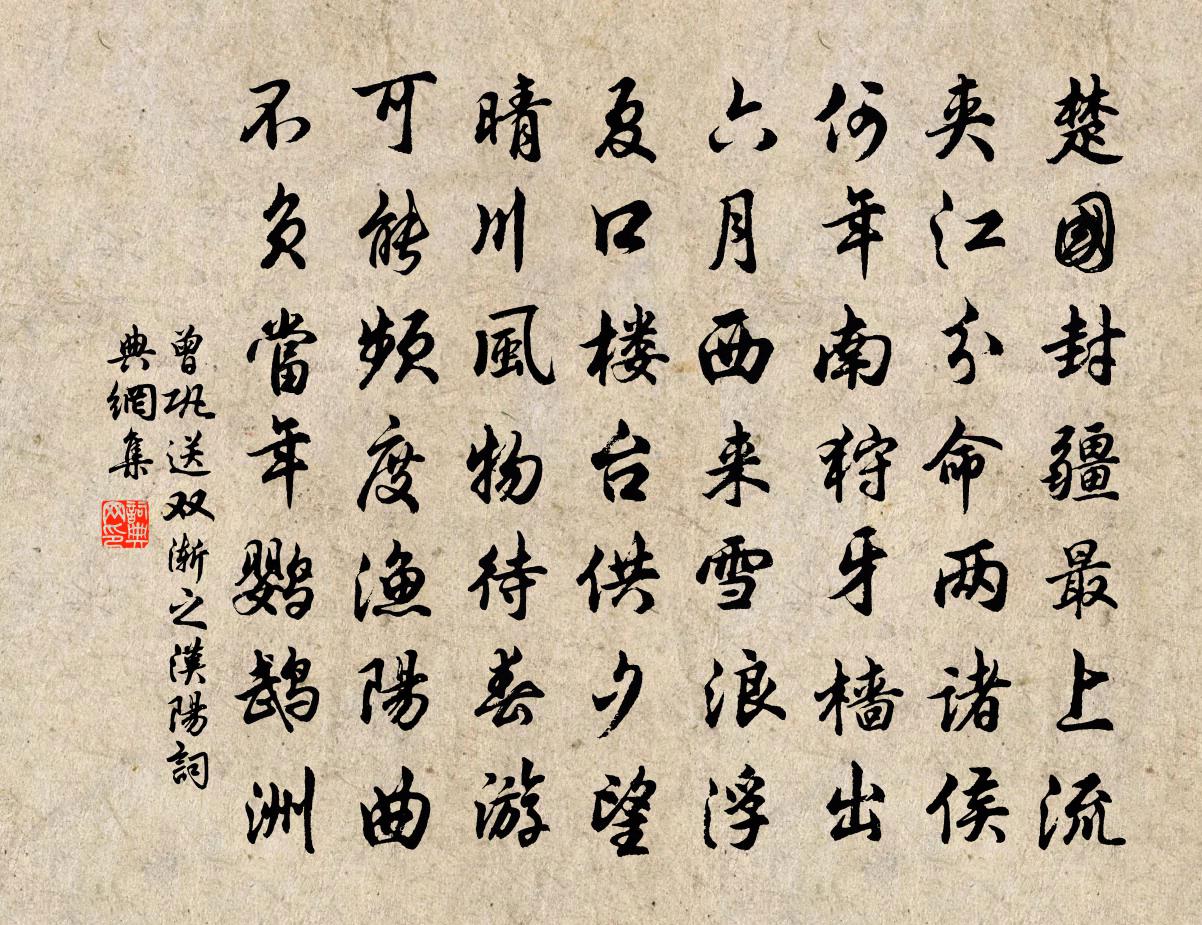 楚國封疆最上流
夹江分命两諸侯
何年南狩牙樯出
六月西来雪浪浮
夏口楼台供夕望
晴川風物待春游
可能頻度漁陽曲
不負當年鹦鹉洲
曾巩送双渐之漢陽詞
典網集
詞典
网印